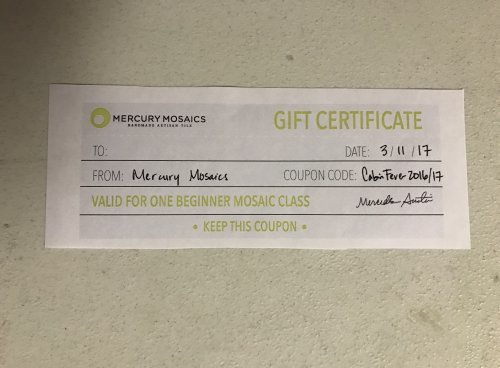 MERCURY MOSAICS
HANDMADE ARTISAN TILE
GIFT CERTIFICATE
TO:
DATE: 3/11/17
FROM: Mercury Mosaics
COUPON CODE: CabinFever2016/17
VALID FOR ONE BEGINNER MOSAIC CLASS
• KEEP THIS COUPON •